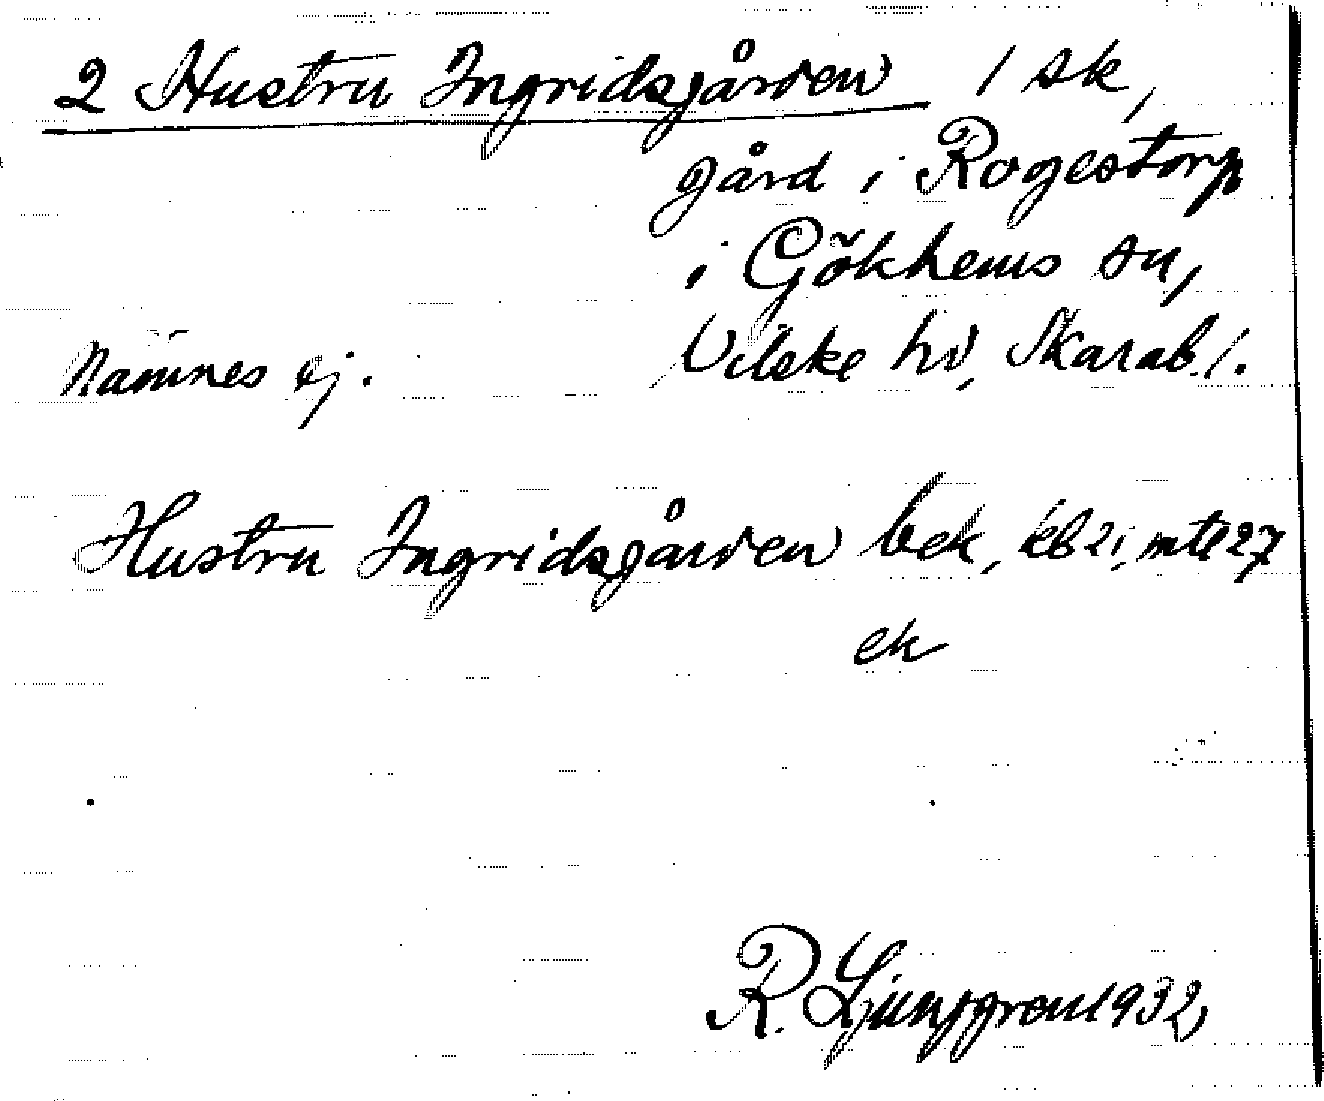 2 Hustru Ingridsgården / sk,
gård i Rogestorp
i Gökhems sn,
Vilske hd, Skarab. l.
Namnes ej.
Hustru Ingridsgården bek, kb 21, mtl 27
ek
R. Ljunggren 1932,